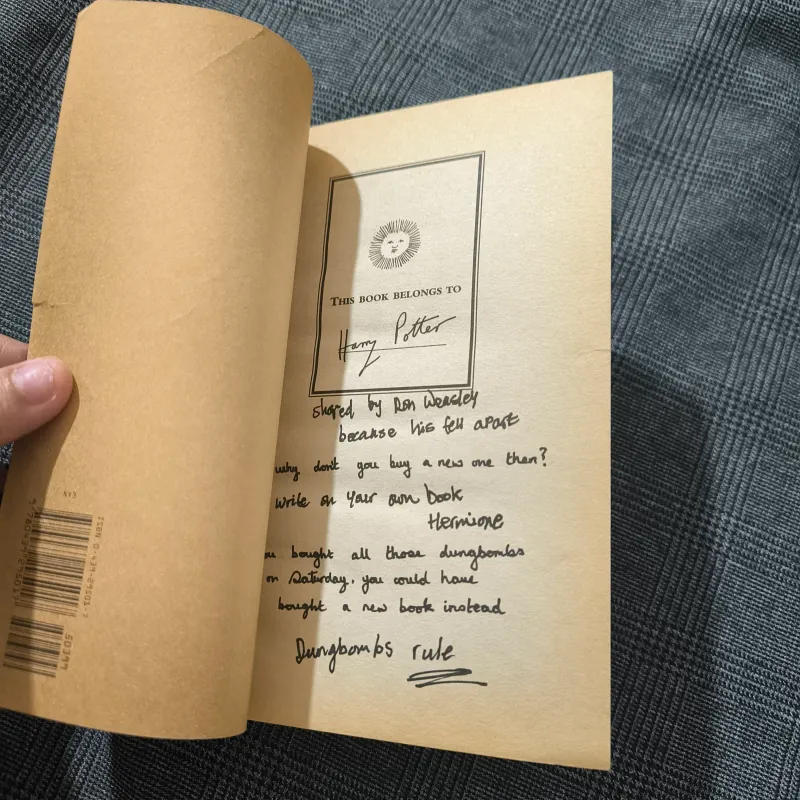 THIS BOOK BELONGS TO
Harry Potter
shared by Ron Weasley
because his fell apart
why don't you buy a new one then?
write on your own book
Hermione
bought all those dungbombs
on Saturday. you could have
bought a new book instead
Dungbombs rule